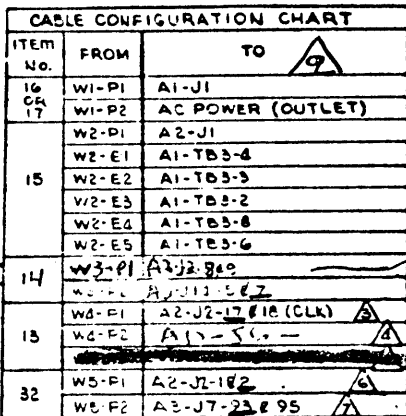 CABLE CONFIGURATION CHART
ITEM No. FROM TO 9
16 OR 17 W1-P1 A1-J1
W1-P2 AC POWER (OUTLET)
15 W2-P1 A2-J1
W2-E1 A1-TB3-4
W2-E2 A1-TB3-3
W2-E3 A1-TB3-2
W2-E4 A1-TB3-8
W2-E5 A1-TB3-6
14 W3-P1
13 W4-P1 A2-J2-17 & 18 (CLK) 3
W4-P2 4
32 W5-P1 A2-J2-1&2 6
W5-P2 A3-J7-23 & 95 7